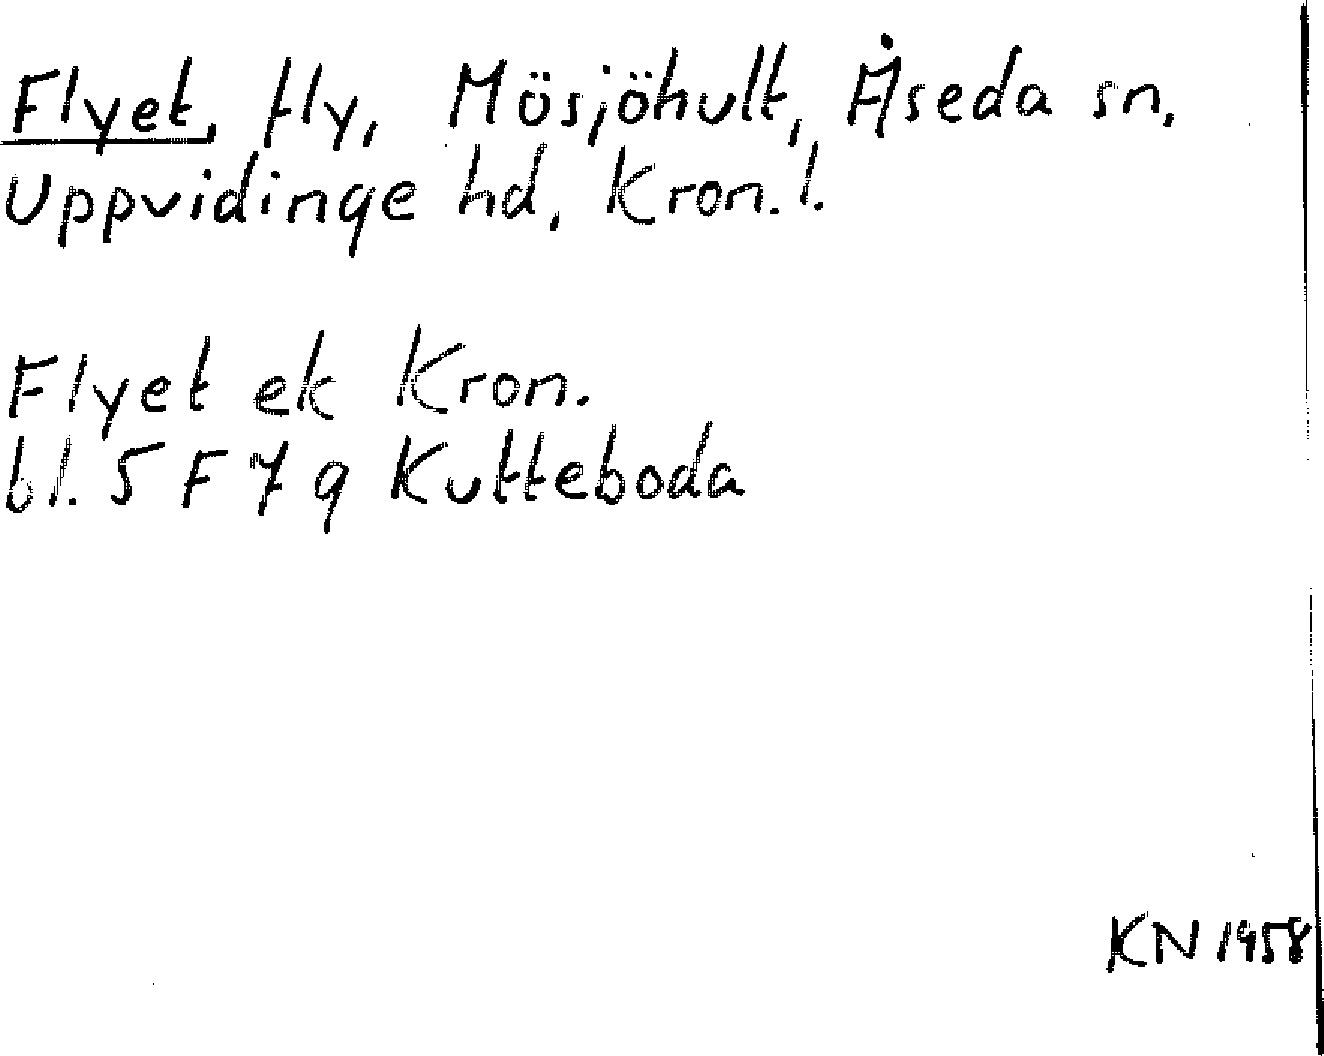 Flyet, fly, Mösjöhult, Åseda sn,
Uppvidinge hd, Kron. l.
Flyet ek Kron.
bl. 5 F 7 g Kutteboda
KN 1958